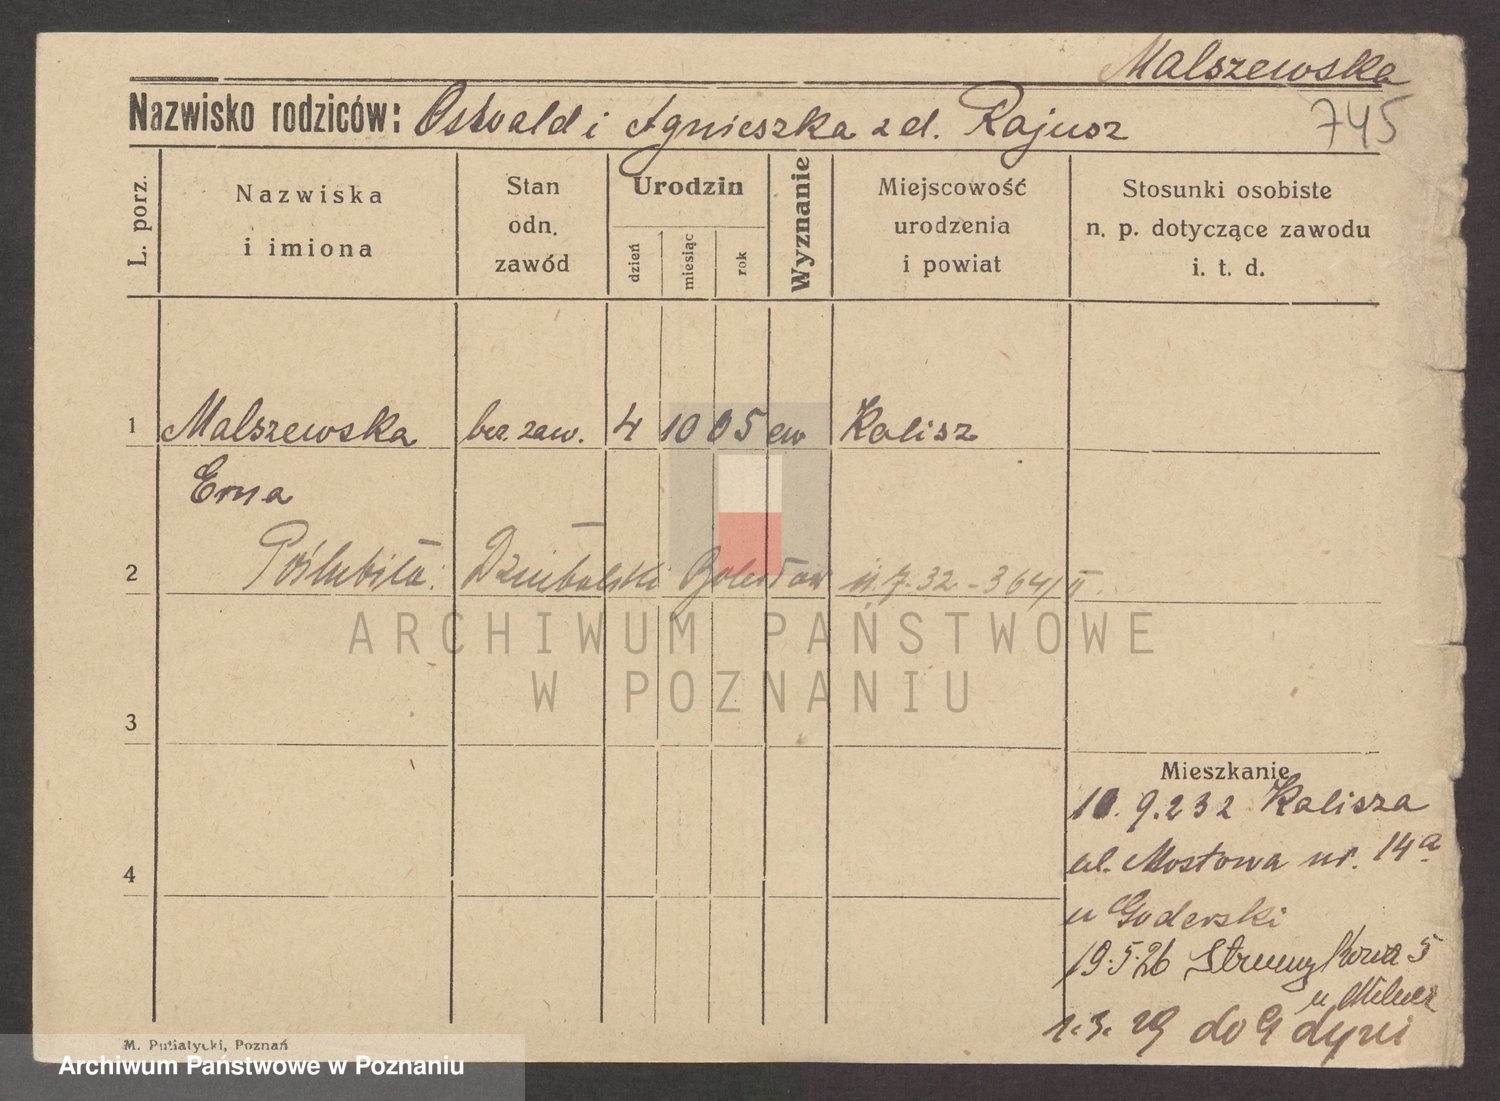 Malszewska
745
Nazwisko rodziców: Ostwald i Agnieszka z d. Rajusz
L. porz.
Nazwiska
i imiona
Stan
odn.
zawód
Urodzin
dzień
miesiąc
rok
Wyznanie
Miejscowość
urodzenia
i powiat
Stosunki osobiste
n. p. dotyczące zawodu
i. t. d.
1 Malszewska bez. zaw. 4 10 05 ew Kalisz
Erna
2 Poślubiła: Bolesław 7. 32 - 364/II.
ARCHIWUM PAŃSTWOWE
W POZNANIU
3
4
Mieszkanie
10. 9. 232 Kalisza
ul. Mostowa nr. 14a
u Goderski
19. 5. 26 Strumykowa 5
1. 3. 29 do Gdyni
M. Putiatycki, Poznań
Archiwum Państwowe w Poznaniu